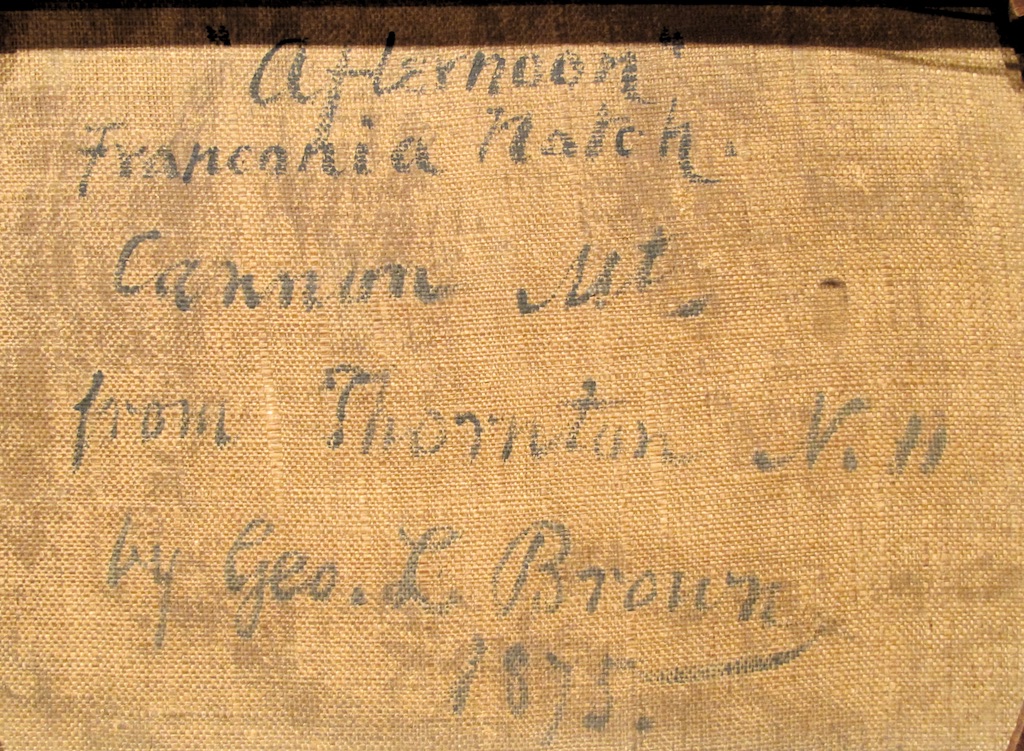 "Afternoon"
Franconia Notch.
Cannon Mt.
from Thornton N. H
by Geo. L. Brown
1875.